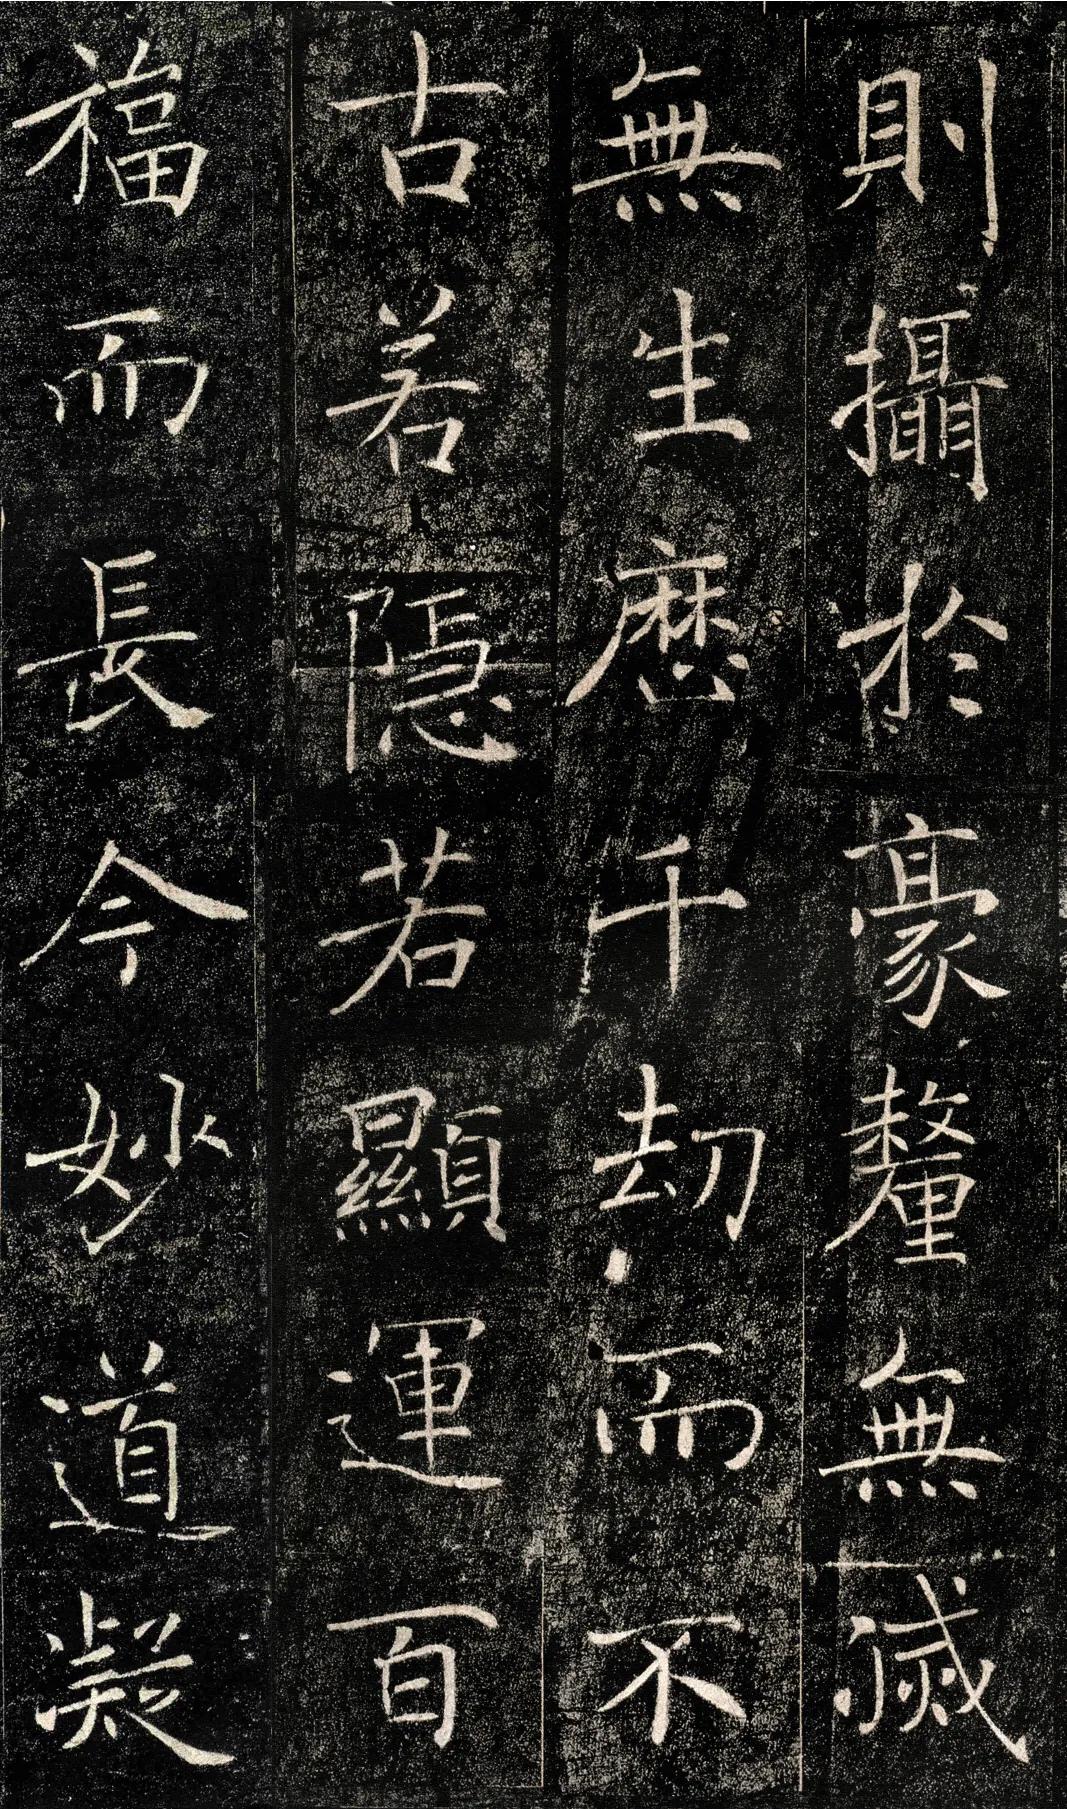 則攝於豪釐無滅
無生歷千劫而不
古若隱若顯運百
福而長今妙道凝